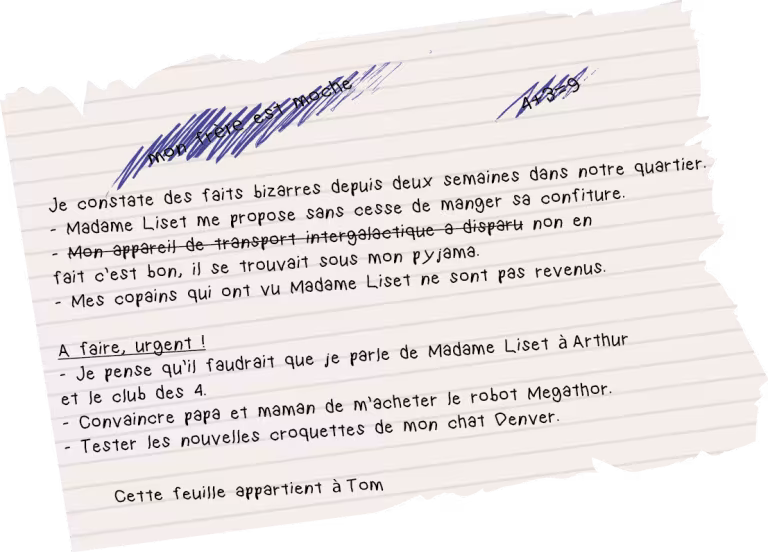 mon frère est moche
4+3=9
Je constate des faits bizarres depuis deux semaines dans notre quartier.
- Madame Liset me propose sans cesse de manger sa confiture.
- Mon appareil de transport intergalactique a disparu non en
fait c'est bon, il se trouvait sous mon pyjama.
- Mes copains qui ont vu Madame Liset ne sont pas revenus.
A faire, urgent !
- Je pense qu'il faudrait que je parle de Madame Liset à Arthur
et le club des 4.
- Convaincre papa et maman de m'acheter le robot Megathor.
- Tester les nouvelles croquettes de mon chat Denver.
Cette feuille appartient à Tom